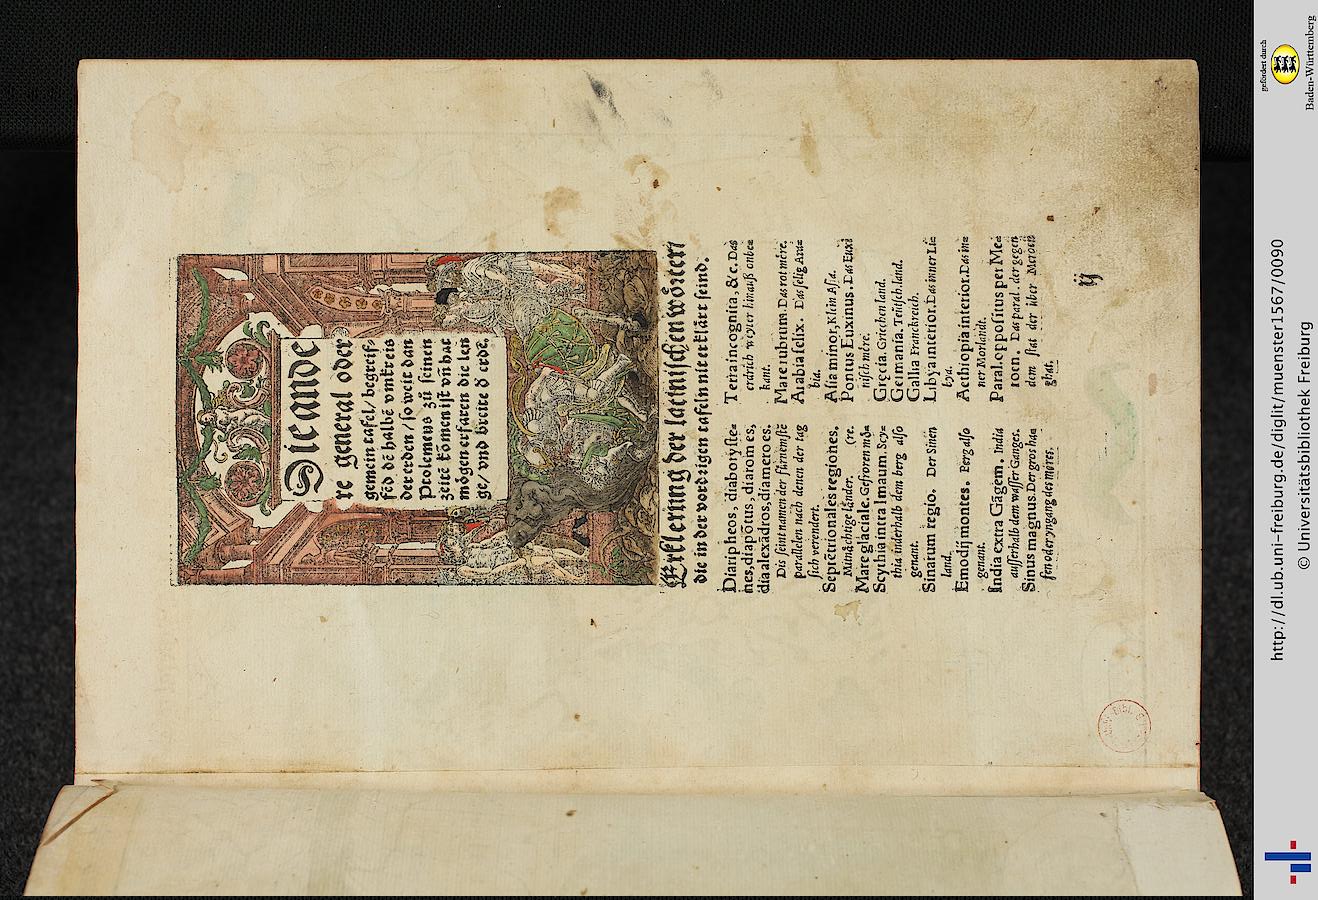 Die ande
re general oder
gemein tafel / begreif-
fēd dē halbē vmkreis
der erden / so weit dan
Ptolemeus zů seinen
zeitē komen ist vn̄ hat
mögen erfaren die len
ge / vnd breite d̕ erdē.
Erklerung der latinischen wörter /
die in der vordrigen tafeln nit erklärt seind.
Diaripheos, diaborysste=
nes, diapōtus, diaromes,
dia alexādros, diameroes.
Dis seint namen der fürnemstē
parallelen nach denen der tag
sich verendert.
Septētrionales regiones.
Mitnächtige länder. (re.
Mare glaciale. Gefroren mö=
Scythia intra Imaum. Scy=
thia inderhalb dem berg also
genant.
Sinarum regio. Der Sinen
land.
Emodij montes. Berg also
genant.
India extra Gāgem. India
ausserhalb dem wasser Ganges.
Sinus magnus. Der gros ha=
fen oder yngang des möres.
Terra incognita, &c. Das
erdrich weyter hinauß onbe=
kant.
Mare rubrum. Das rot möre.
Arabia felix. Das selig Ara=
bia.
Asia minor, Klein Asia.
Pontus Euxinus. Das Euxi
nisch möre.
Grecia. Griechenland.
Germania. Teütsch land.
Gallia Franckreich.
Libya interior. Das inner Li=
bya.
Aethiopia interior. Das in=
ner Morlandt.
Paral. oppositus per Me=
roen. Das paral. der gegen
dem stat der über Meroen
ghat.
ij
gefördert durch
Baden-Württemberg
http://dl.ub.uni-freiburg.de/diglit/muenster1567/0090
© Universitätsbibliothek Freiburg